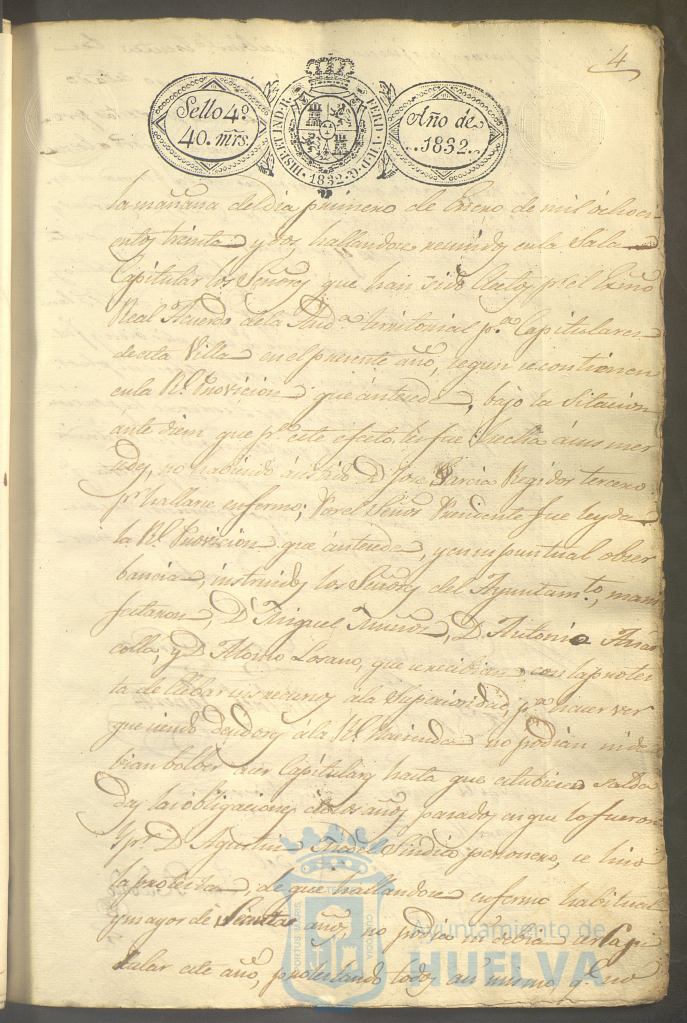 4
Sello 4º
40. mrs.
HISP. ET IND. R. FERD. VII. D. G. 1832.
Año de
..1832..
la mañana del dia primero de Enero de mil ochoci
entos treinta y dos, hallandose reunidos en la Sala
Capitular los Señores que han sido electos pr el Exmo
Real Acuerdo de la Auda territorial pa Capitulares
de esta Villa en el presente año, segun se contienen
en la Rl Provicion que antecede, bajo la Sitacion
ante diem que pa este efecto, les fue hecha á sus mer
cedes, no habiendo asistido D. Jose Garcia Regidor tercero
pr hallarse enfermo; Por el Señor Precidente fue leyda
la Rl Provicion que antecede, y en su puntual obser
bancia, instruidos los Señores del Ayuntamto, mani
festaron, Dn Miguel Muños, D. Antonio
y D. Alonso Losano, que recibian con la protes
ta de llebar sus recursos á la Superioridad, pa hacer ver
que siendo deudores á la Rl Hacienda no podian ni de
bian bolber á ser Capitulares hasta que estubiesen solda
das las obligaciones de los años pasados en que lo fueron
Y pr D. Agustin Sindico personero, se hiso
la protesta, de que hallandose enfermo habitual
y mayor de años, no podia ni debia ser Capi
tular este año, protestando todos asi mismo qe no
Ayuntamiento de
HUELVA